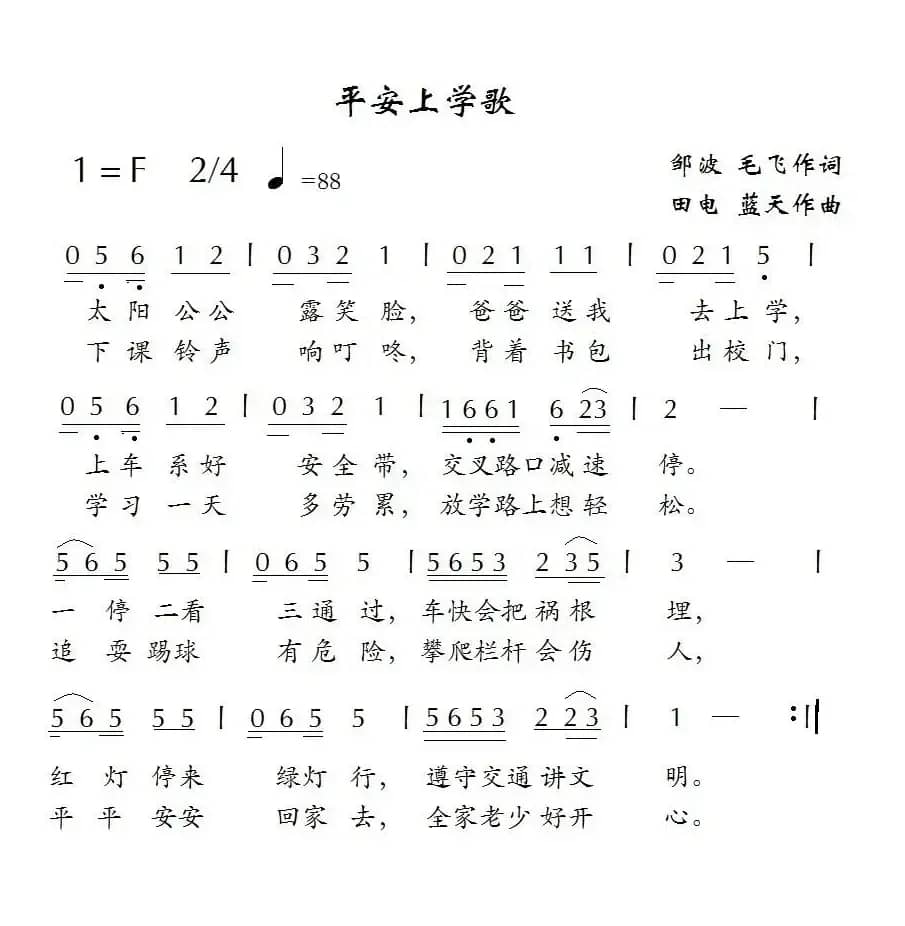 平安上学歌
1=F 2/4 ♩=88
邹波 毛飞作词
田电 蓝天作曲
0 5̣ 6̣ 1 2 | 0 3 2 1 | 0 2 1 1 1 | 0 2 1 5̣ |
太阳公公 露笑脸, 爸爸送我 去上学,
下课铃声 响叮咚, 背着书包 出校门,
0 5̣ 6̣ 1 2 | 0 3 2 1 | 1 6̣ 6̣ 1 6̣ 2 3 | 2 — |
上车系好 安全带, 交叉路口减速 停。
学习一天 多劳累, 放学路上想轻 松。
5 6 5 5 5 | 0 6 5 5 | 5 6 5 3 2 3 5 | 3 — |
一停二看 三通过, 车快会把祸根 埋,
追耍踢球 有危险, 攀爬栏杆会伤 人,
5 6 5 5 5 | 0 6 5 5 | 5 6 5 3 2 2 3 | 1 — :||
红灯停来 绿灯行, 遵守交通讲文 明。
平平安安 回家去, 全家老少好开 心。